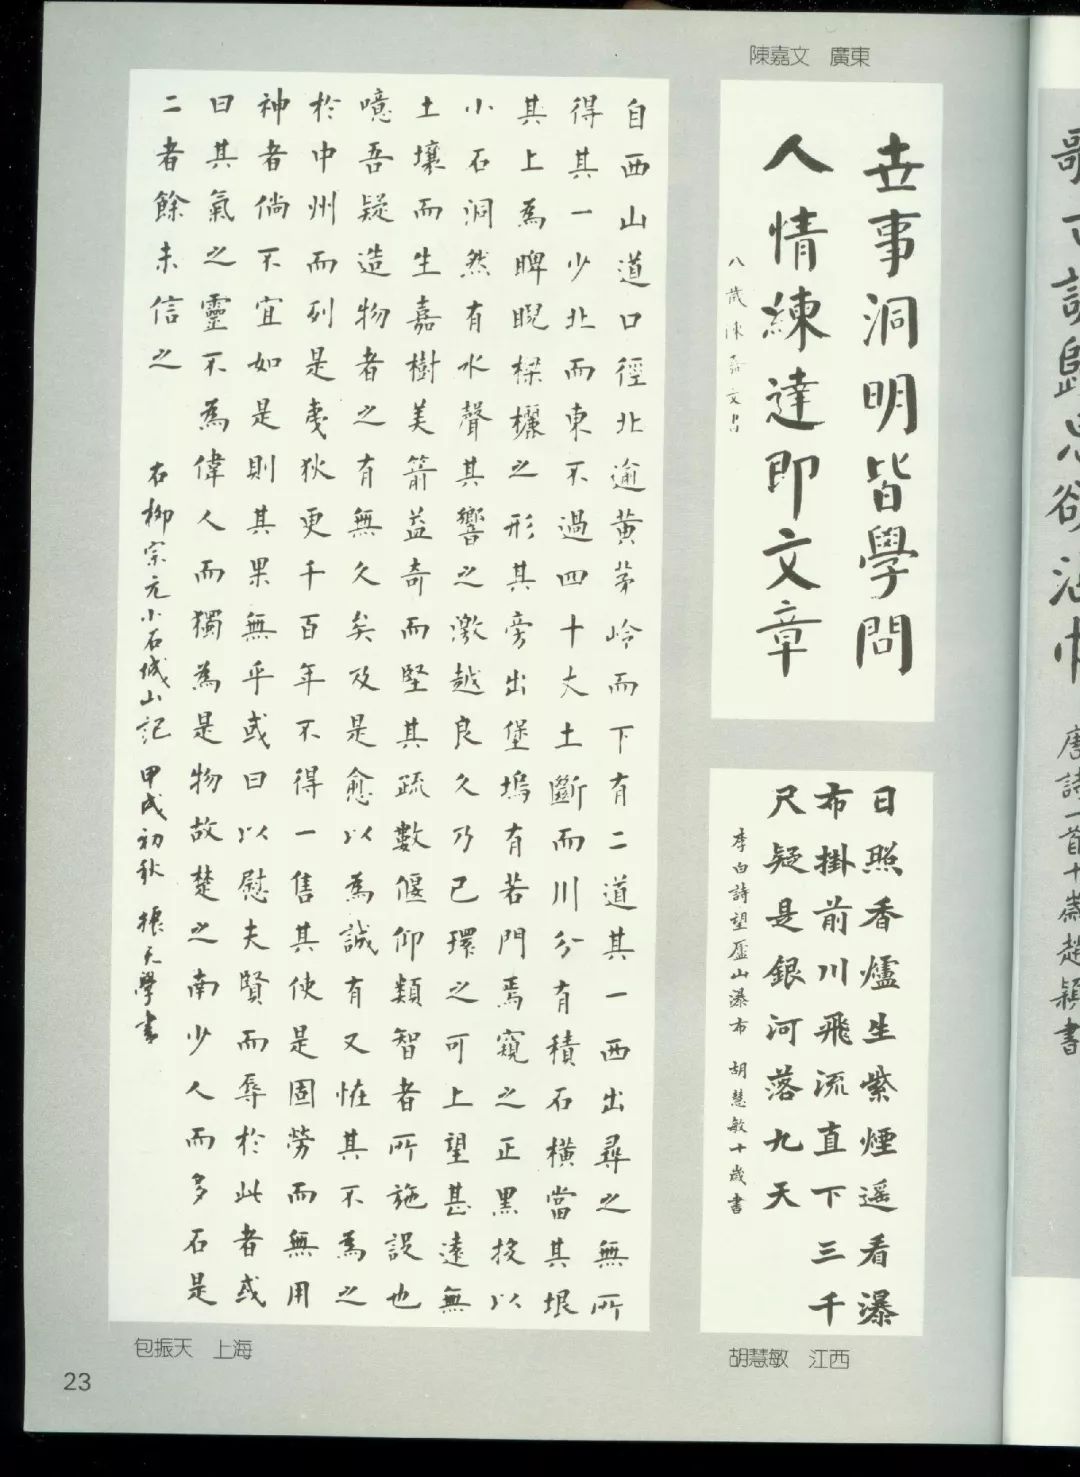 陳嘉文 廣東
世事洞明皆學問
人情練達即文章
八歲陳嘉文書
日照香爐生紫煙遥看瀑
布掛前川飛流直下三千
尺疑是銀河落九天
李白詩望廬山瀑布 胡慧敏十歲書
胡慧敏 江西
自西山道口徑北逾黄茅岭而下有二道其一西出尋之無所
得其一少北而東不過四十丈土斷而川分有積石横當其垠
其上為睥睨樑欐之形其旁出堡塢有若門焉窺之正黑投以
小石洞然有水聲其響之激越良久乃已環之可上望甚遠無
土壤而生嘉樹美箭益奇而堅其疏數偃仰類智者所施設也
噫吾疑造物者之有無久矣及是愈以為誠有又怪其不為之
於中州而列是夷狄更千百年不得一售其使是固勞而無用
神者倘不宜如是則其果無乎或曰以慰夫賢而辱於此者或
曰其氣之靈不為偉人而獨為是物故楚之南少人而多石是
二者餘未信之
右柳宗元小石城山記 甲戌初秋 振天學書
包振天 上海
23
歸思欲沾巾
唐詩一首十歲趙穎書